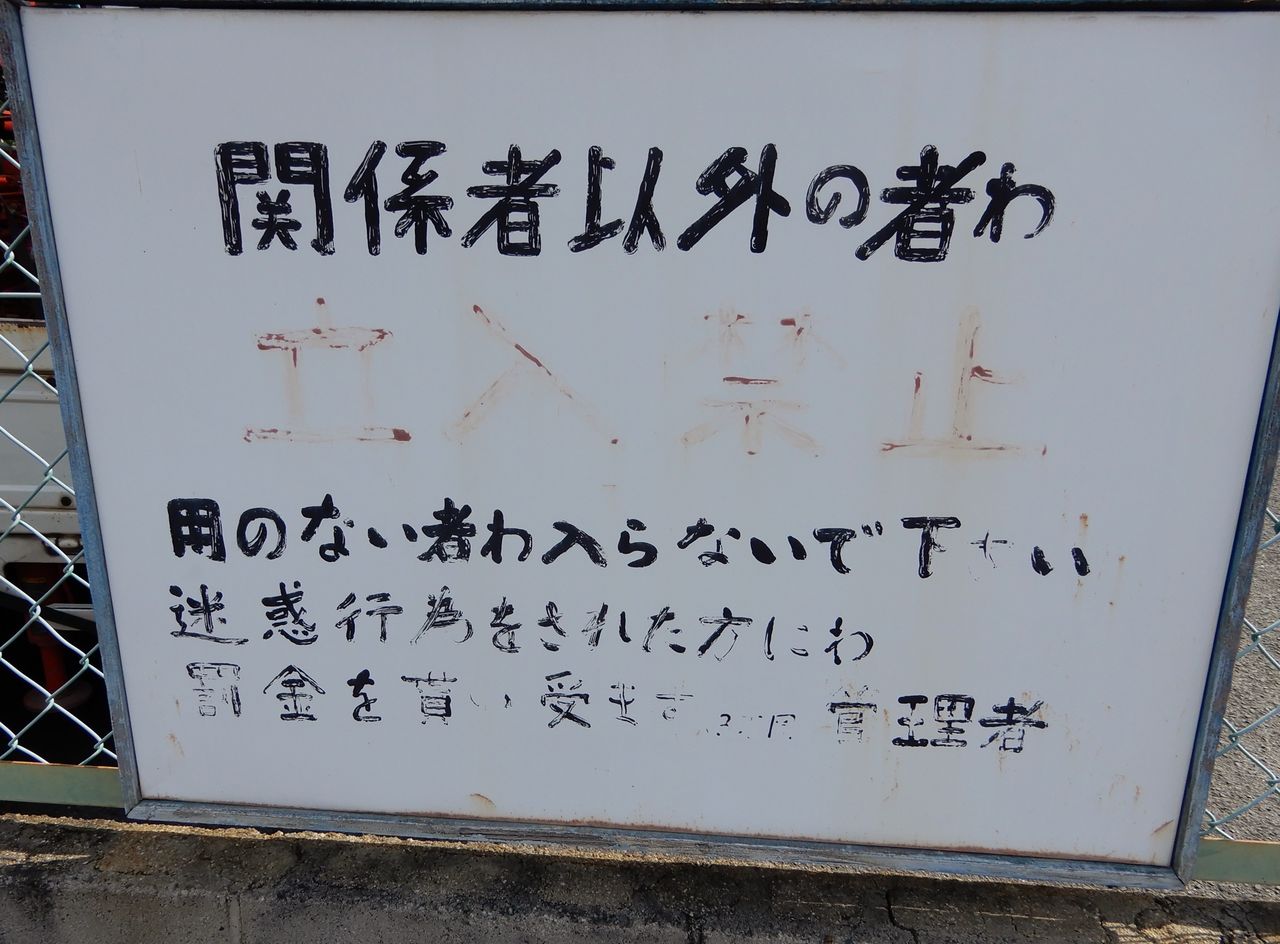 関係者以外の者わ
立入禁止
用のない者わ入らないで下さい
迷惑行為をされた方にわ
罰金を貰い受ます 管理者